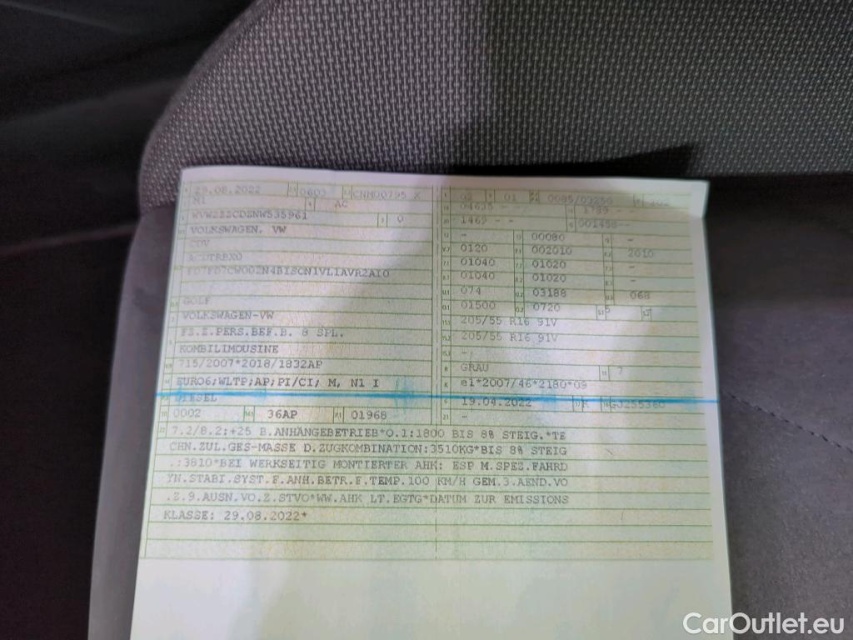 29.08.2022 0603
M1 AC
0
VOLKSWAGEN, VW
CDV
GOLF
VOLKSWAGEN-VW
FZ.Z.PERS.BEF.B. 8 SPL.
KOMBILIMOUSINE
715/2007*2018/1832AP
EURO6;WLTP;AP;PI/CI; M, N1 I
DIESEL
0002 36AP 01968
01
1469 - -
- 00080 -
0120 002010 2010
01040 01020 -
01040 01020 -
074 03188 068
01500 0720
205/55 R16 91V
205/55 R16 91V
-
GRAU 7
e1*2007/46*2180*09
19.04.2022 K
-
7.2/8.2:+25 B.ANHÄNGEBETRIEB*O.1:1800 BIS 8% STEIG.*TE
CHN.ZUL.GES-MASSE D.ZUGKOMBINATION:3510KG*BIS 8% STEIG
.:3810*BEI WERKSEITIG MONTIERTER AHK: ESP M.SPEZ.FAHRD
YN.STABI.SYST.F.ANH.BETR.F.TEMP.100 KM/H GEM.3.AEND.VO
.Z.9.AUSN.VO.Z.STVO*WW.AHK LT.EGTG*DATUM ZUR EMISSIONS
KLASSE: 29.08.2022*
CarOutlet.eu